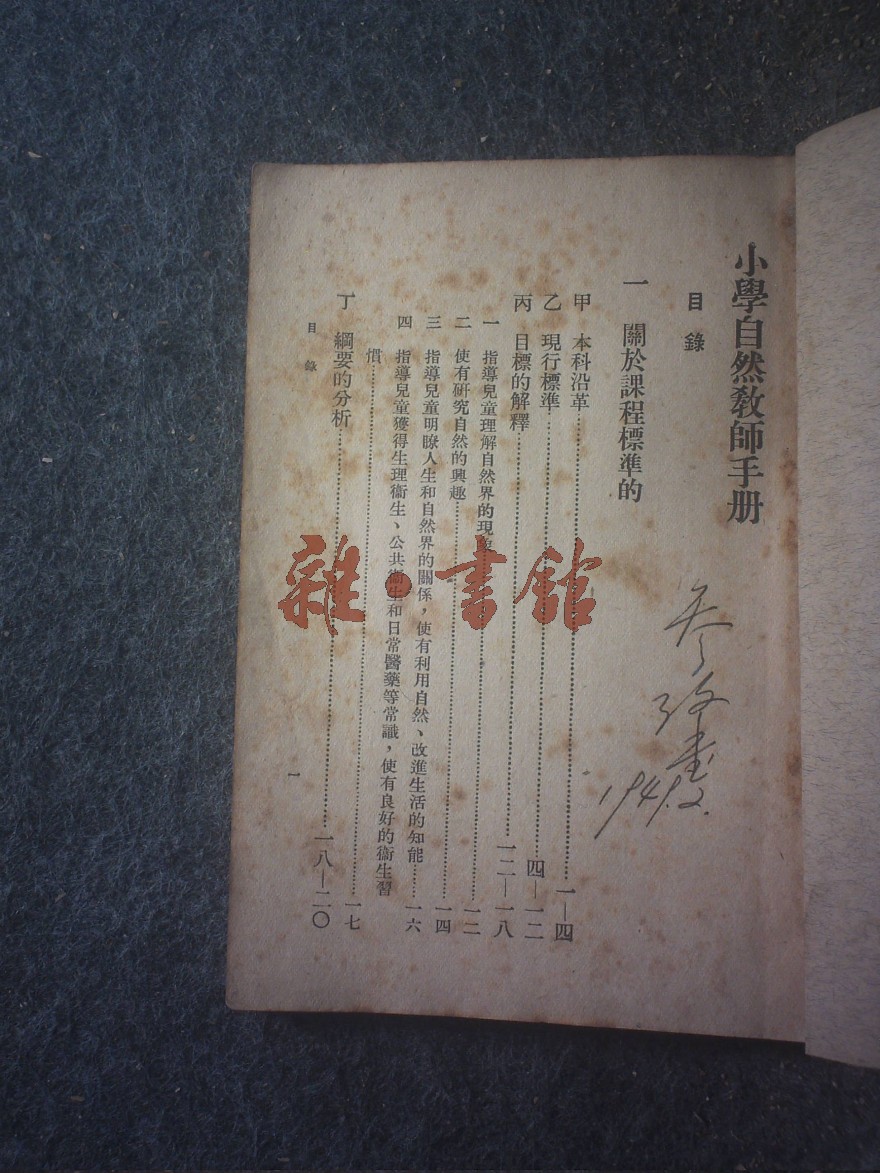 小學自然敎師手册
目錄
一 關於課程標準的
甲 本科沿革……一—四
乙 現行標準……四—一二
丙 目標的解釋……一二—一八
一 指導兒童理解自然界的現……一二
二 使有研究自然的興趣……一四
三 指導兒童明瞭人生和自然界的關係，使有利用自然、改進生活的知能……一六
四 指導兒童獲得生理衞生、公共衞生和日常醫藥等常識，使有良好的衞生習
慣……一七
丁 綱要的分析……一八—二〇
目錄
一
1949.2.
雜·書館